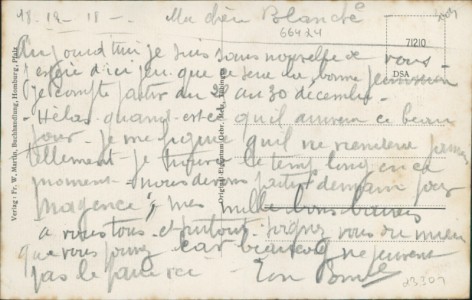 18-12-18- Ma chère Blanche
Aujourd'hui je suis sans nouvelle de vous
j'espère d'ici peu que ce sera la bonne
je compte partir du 28 au 30 décembre.
Hélas quand est-ce qu'il arrivera ce beau
jour. je me figure qu'il ne viendra jamais
tellement je trouve le temps long en ce
moment nous devons partir demain pour
Mayence; mes mille bons baisers
a vous tous et surtout soignez vous du mieux
que vous pouvez car beaucoup ne peuvent
pas le faire ici - Ton
66424
71210
DSA
23301
Verlag: Fr. W. Martin, Buchhandlung, Homburg, Pfalz
Original-Eigentum Gebr. Metz, Tübingen